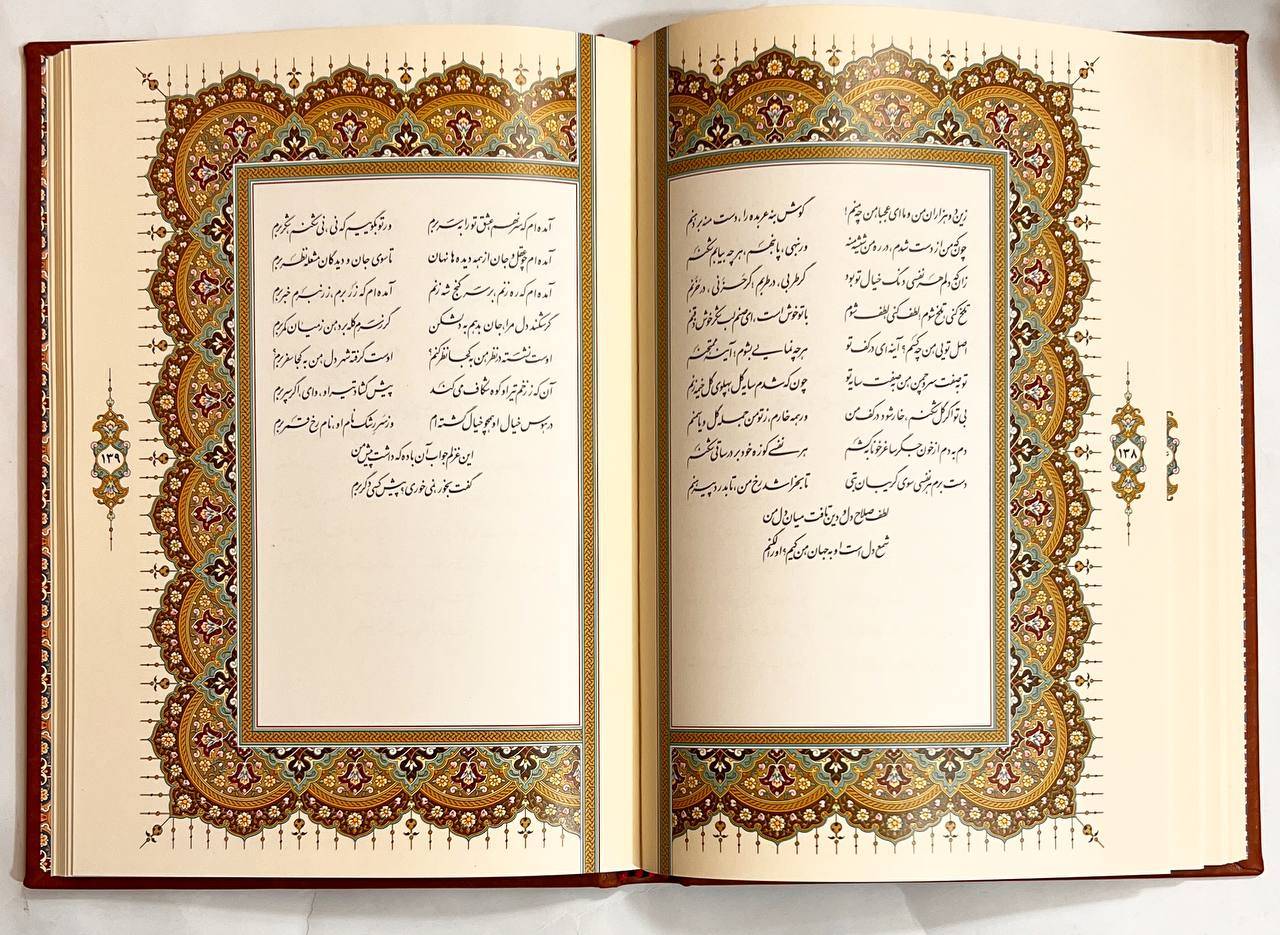 زین دو هزاران من و ما ای عجبا من چه منم! گوش بنه عربده را، دست منه بر دهنم
چون که من از دست شدم، در ره من شیشه منه ور بنهی، پا بنهم، هر چه بیابم شکنم
زان که دلم هر نفسی دنگ خیال تو بود گر طربی، در طربم؛ گر حزنی، در حزنم
تلخ کنی تلخ شوم، لطف کنی لطف شوم با تو خوش است، ای صنم لب شکر خوش ذقنم
اصل تویی، من چه کسم؟ آینه ای در کف تو هر چه نمایی بشوم، آینهٔ ممتحنم
تو به صفت سرو چمن، من به صفت سایه تو چون که شدم سایه گل، پهلوی گل خیمه زنم
بی تو اگر گل شکنم، خار شود در کف من ور همه خارم، ز تو من جمله گل و یاسمنم
دم به دم از خون جگر ساغر خونابه کشم هر نفسی کوزه خود بر در ساقی شکنم
دست برم هر نفسی سوی گریبان بتی تا بخراشد رخ من، تا بدرد پیرهنم
لطف صلاح دل و دین تافت میان دل من
شمع دل است او به جهان من کیم؟ او را لگنم
۱۳۸
آمده ام که سر نهم عشق تو را به سر برم ور تو بگوییم که نی، نی شکنم شکر برم
آمده ام چو عقل و جان از همه دیده ها نهان تا سوی جان و دیدگان مشعله نظر برم
آمده ام که ره زنم بر سر گنج شه زنم آمده ام که زر برم، زر نبرم خبر برم
گر شکند دل مرا، جان بدهم به دلشکن گر ز سرم کله برد من ز میان کمر برم
اوست نشسته در نظر من به کجا نظر کنم؟ اوست گرفته شهر دل من به کجا سفر برم
آن که ز زخم تیر او کوه شکاف می کند پیش گشاد تیر او، وای! اگر سپر برم
در هوس خیال او همچو خیال گشته ام وز سر رشک نام او، نام رخ قمر برم
این غزلم جواب آن باده که داشت پیش من
گفت بخور نمی خوری؟ پیش کسی دگر برم
۱۳۹